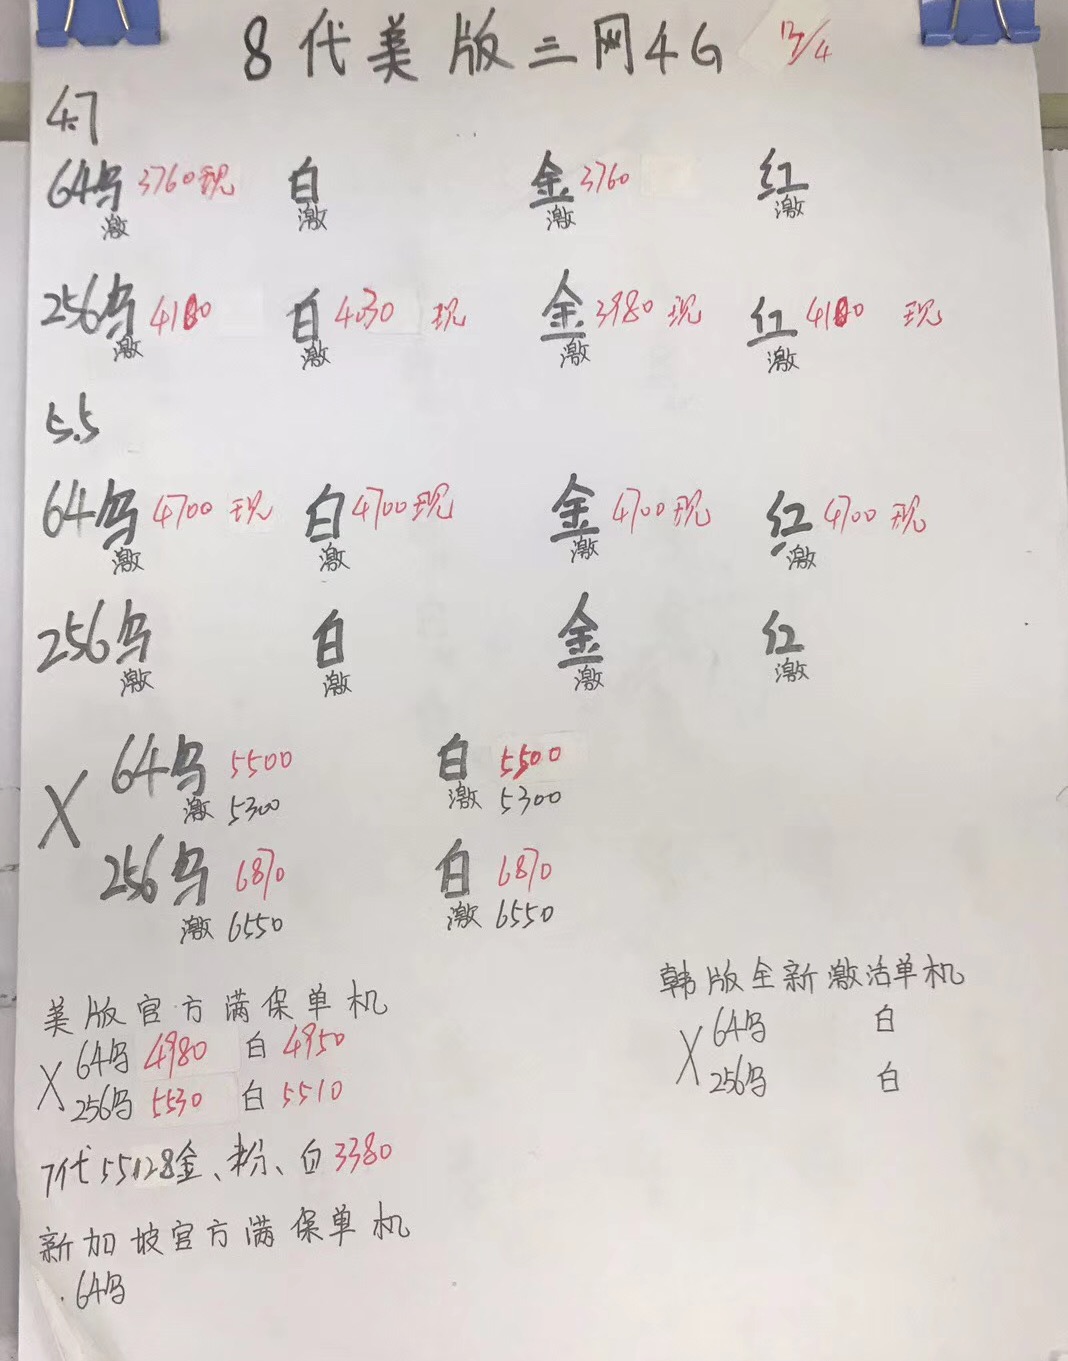 8代美版三网4G 17/4
4.7
64乌 3760现 白 金 3760 红
激 激 激 激
256乌 4180 白 4030 现 金 3980 现 红 4180 现
激 激 激 激
5.5
64乌 4700 现 白 4700现 金 4700现 红 4700 现
激 激 激 激
256乌 白 金 红
激 激 激 激
X 64乌 5500 白 5500
激 5300 激 5300
256乌 6870 白 6870
激 6550 激 6550
美版官方满保单机
X 64乌 4980 白 4950
256乌 5530 白 5510
7代 55128金、粉、白 3380
新加坡官方满保单机
64乌
韩版全新激活单机
X 64乌 白
256乌 白